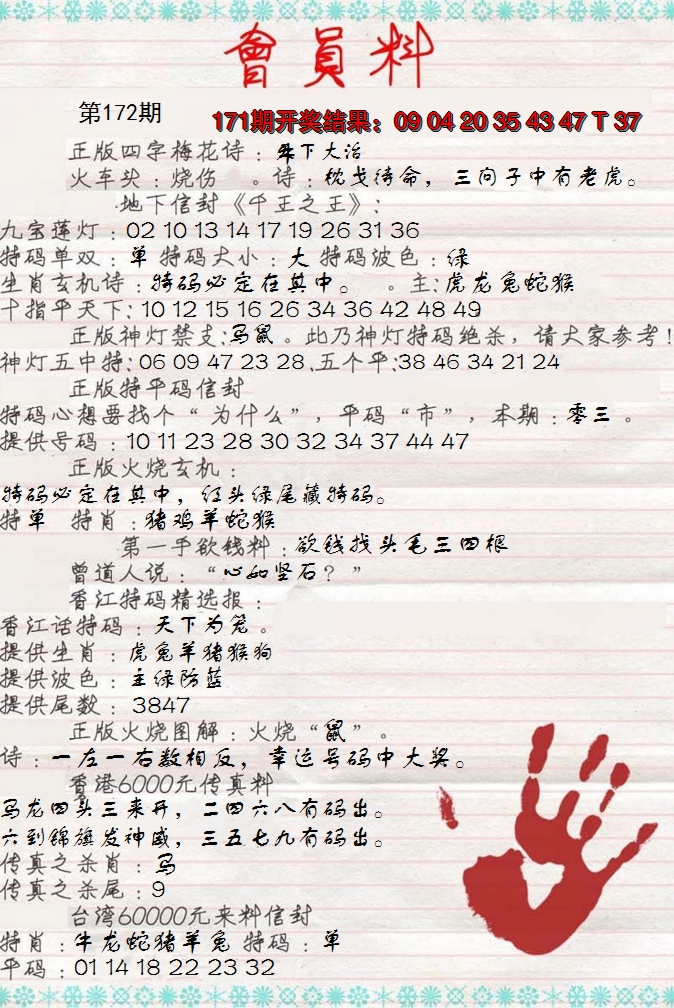 會員料
第172期
171期开奖结果：09 04 20 35 43 47 T 37
正版四字梅花诗：天下大治
火车头：烧伤 。诗：枕戈待命，三问子中有老虎。
地下信封《千王之王》：
九宝莲灯：02 10 13 14 17 19 26 31 36
特码单双：单 特码大小：大 特码波色：绿
生肖玄机诗：特码必定在其中。 。主：虎龙兔蛇猴
十指平天下：10 12 15 16 26 34 36 42 48 49
正版神灯禁支：马鼠。此乃神灯特码绝杀，请大家参考！
神灯五中特：06 09 47 23 28.五个平：38 46 34 21 24
正版特平码信封
特码心想要找个“为什么”，平码“市”，本期：零三。
提供号码：10 11 23 28 30 32 34 37 44 47
正版火烧玄机：
特码必定在其中，红头绿尾藏特码。
特单 特肖：猪鸡羊蛇猴
第一手欲钱料：欲钱找头毛三四根
曾道人说：“心如坚石？”
香江特码精选报：
香江话特码：天下为笼。
提供生肖：虎兔羊猪猴狗
提供波色：主绿防蓝
提供尾数：3847
正版火烧图解：火烧“鼠”。
诗：一左一右数相反，幸运号码中大奖。
香港6000元传真料
马龙四头三来开，二四六八有码出。
六到锦旗发神威，三五七九有码出。
传真之杀肖：马
传真之杀尾：9
台湾60000元来料信封
特肖：牛龙蛇猪羊兔 特码：单
平码：01 14 18 22 23 32